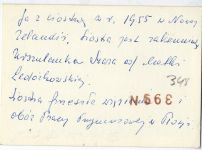 Ja z siostrą w r. 1955 w Nowej
Zelandii, siostra jest zakonnicą
Urszulanka Szara od Matki
Ledóchowskiej.
348
Siostra przeszła
N 668 i
obóz Pracy Przymusowej w Rosji